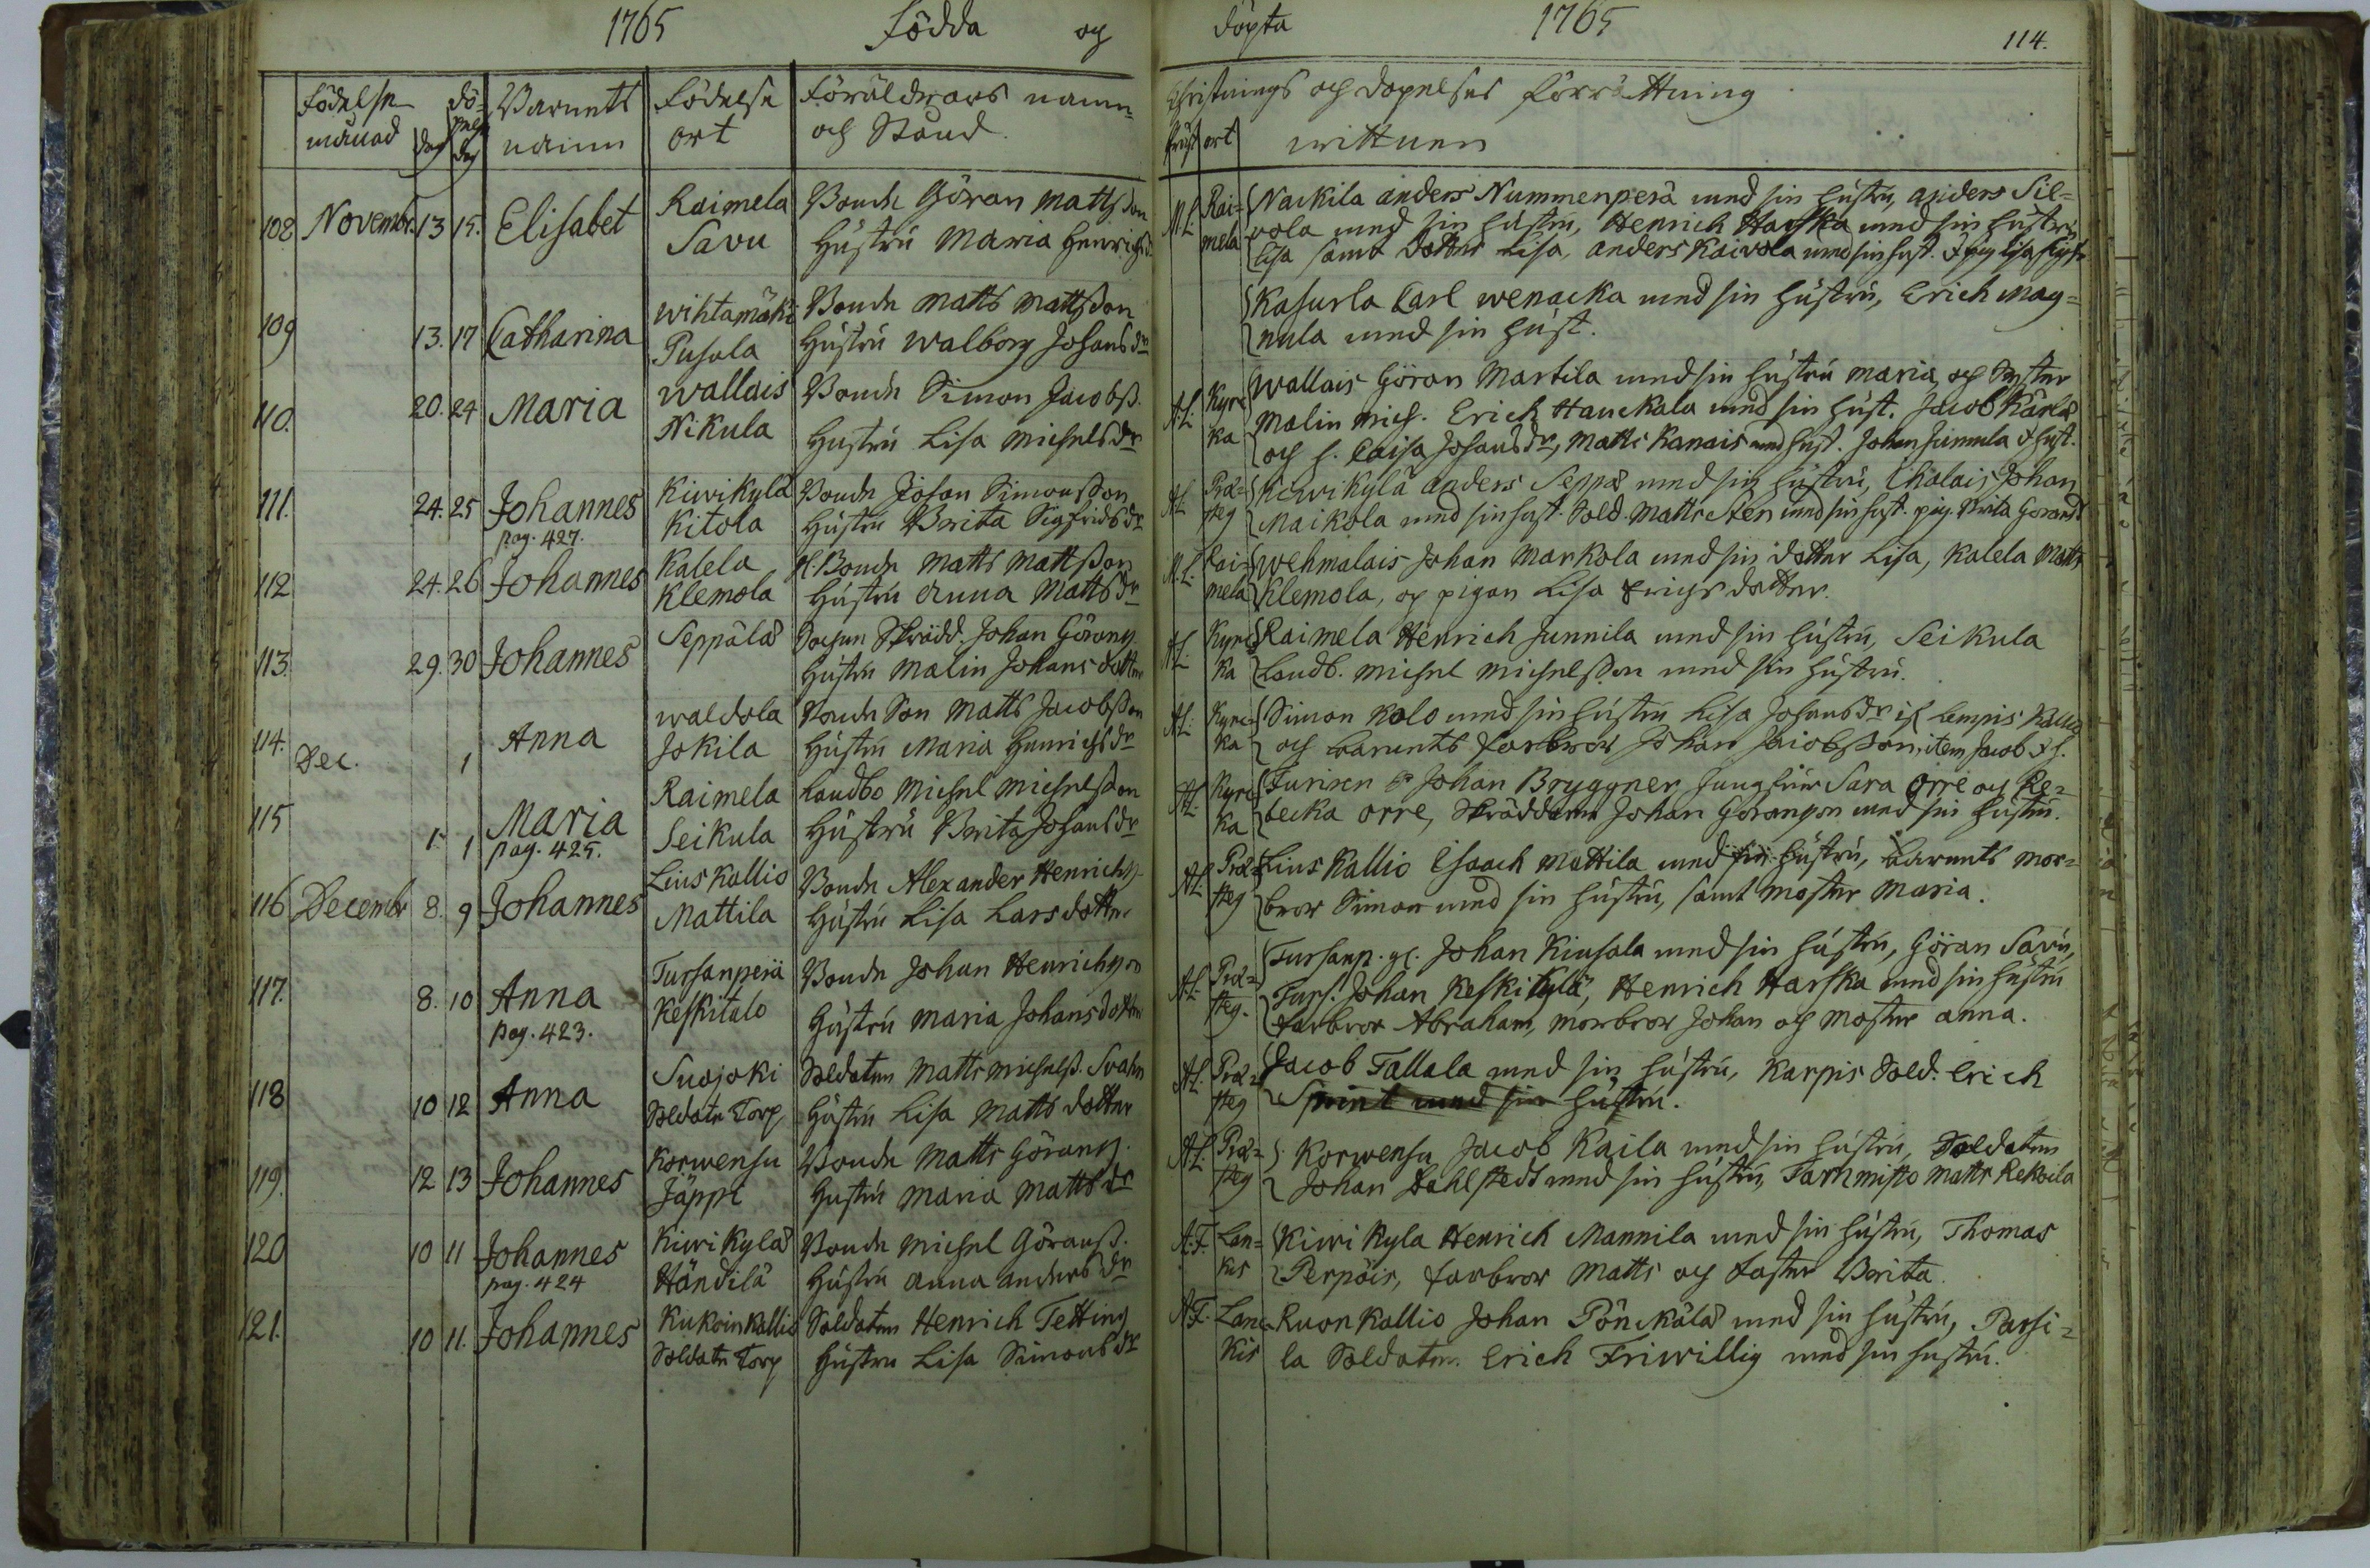 1765 Födda och
Födelse månad dag
döpelse dag
Barnets namn
Födelse ort
Föräldrars namn och Stånd.
108 Novembr. 13 15. Elisabet Raimela Savu
Bonde Göran Mattsson
Hustru Maria Henrichsdr
109 13. 17 Catharina Wihtamäki Pusala
Bonde Matts Mattsson
Hustru Walborg Johansdr
110. 20. 24 Maria Wallais Nikula
Bonde Simon Jacobss.
Hustru Lisa Michelsdr
111. 24. 25 Johannes Kiwikylä Kitola
pag. 427.
Bonde Johan Simonsson
Hustru Berita Sigfridsdr
112 24. 26 Johannes Kalela Klemola
Bonde Matts Mattsson
Hustru Anna Mattsdr
113. 29. 30 Johannes Seppälä
Sochen Skrädd. Johan Görans.
Hustru Malin Johansdotter
114. Dec. 1 Anna Waldola Jokila
Bonde Son Matts Jacobsson
Hustru Maria Henrichsdr
115 1. 1 Maria Raimela Seikula
pag. 425.
Landbo Michel Michelsson
Hustru Berita Johansdr
116 Decembr 8. 9 Johannes Liuskallio Mattila
Bonde Alexander Henrichs.
Hustru Lisa Larsdotter
117. 8. 10 Anna Tursanperä Keskitalo
pag. 423.
Bonde Johan Henrichsson
Hustru Maria Johansdotter
118 10 12 Anna Suojoki Soldate Torp
Soldaten Matts Michelss. Svahn
Hustru Lisa Matts dotter
119. 12 13 Johannes Korwensu Jäppi
Bonde Matts Görans.
Hustru Maria Mattsdr
120 10 11 Johannes Kiwikylä Händilä
pag. 424
Bonde Michel Göranss.
Hustru Anna Andersdr
121. 10 11. Johannes Kukoinkallio Soldate Torp
Soldaten Henrich Tetting
Hustru Lisa Simonsdr
döpta 1765
114.
Christnings och döpelses förrättning
ort wittnen
M.L. Raimela Nackila Anders Nummenperä med sin hustru, Anders Sil=
vola med sin hustru, Henrich Harska med sin hustru
Lisa samt dotter Lisa, Anders Kaivola med sin hust.
Kasurla Carl Wenacka med sin hustru, Erich Mag=
nula med sin hust.
A.L. Kyrc ka Wallais Göran Martila med sin hustru Maria, och Syster
Malin Mich. Erich Hauckala med sin hust. Jacob Kärlä
och h. Caisa Johansdr, Matts Kanais med hust. Johan Junnula
A.L. Prästeg Kiwikylä Anders Seppä med sin hustru, Johan
Maikola med sin hust. Sold. Matts Åen med sin hust. pig. Brita Göransd
M.L. Raimela Wehmalais Johan Markola med sin dotter Lisa, Kalela Matts
Klemola, och pigan Lisa Erichsdotter.
A.L. Kyrc ka Raimela Henrich Junnila med sin hustru, Seikula
Landb. Michel Michelsson med sin hustru.
A.L. Kyrc= ka Simon Kolo med sin hustru Lisa Johansdr
och barnets farbror Johan Jacobsson, item Jacob
A.L. Kyrc ka Johan Bryggner Jungfrur Sara Orre och Re=
becka Orre, Skräddaren Johan Göransson med sin hustru.
A.L. Prä= steg Liuskallio Isaach Mattila med sin hustru, barnets mor=
bror Simon med sin hustru, samt moster Maria.
A.L. Prä= steg. Tursanp. Johan Kiusala med sin hustru, Göran Savu,
Turs. Johan Keskikylä, Henrich Harska med sin hustru
farbror Abraham, morbror Johan och moster Anna.
A.L. Prä= steg Jacob Tallala med sin hustru, Karpis Sold. Erich
Sprint med sin hustru.
A.L. Prä= steg Korwensu Jacob Kaila med sin hustru, Soldaten
Johan Dahlstedt med sin hustru, Tammisto Matts Rekoila
A.F. Lan= kis Kiwikyla Henrich Mannila med sin hustru, Thomas
Perpöis, farbror Matts och faster Berita.
A.F. Lan= kis Kuonkallio Johan Pönckälä med sin hustru, Parsi=
la Soldaten Erich Friwillig med sin hustru.